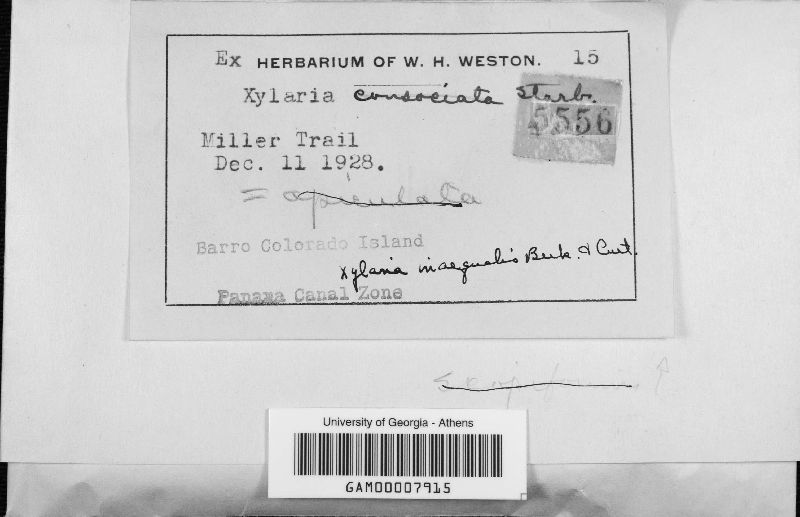 Ex HERBARIUM OF W. H. WESTON. 15
Xylaria consociata Starb.
5556
Miller Trail
Dec. 11 1928.
= apiculata
Barro Colorado Island
Xylaria inaequalis Berk. & Curt.
Panama Canal Zone
University of Georgia - Athens
GAM00007915